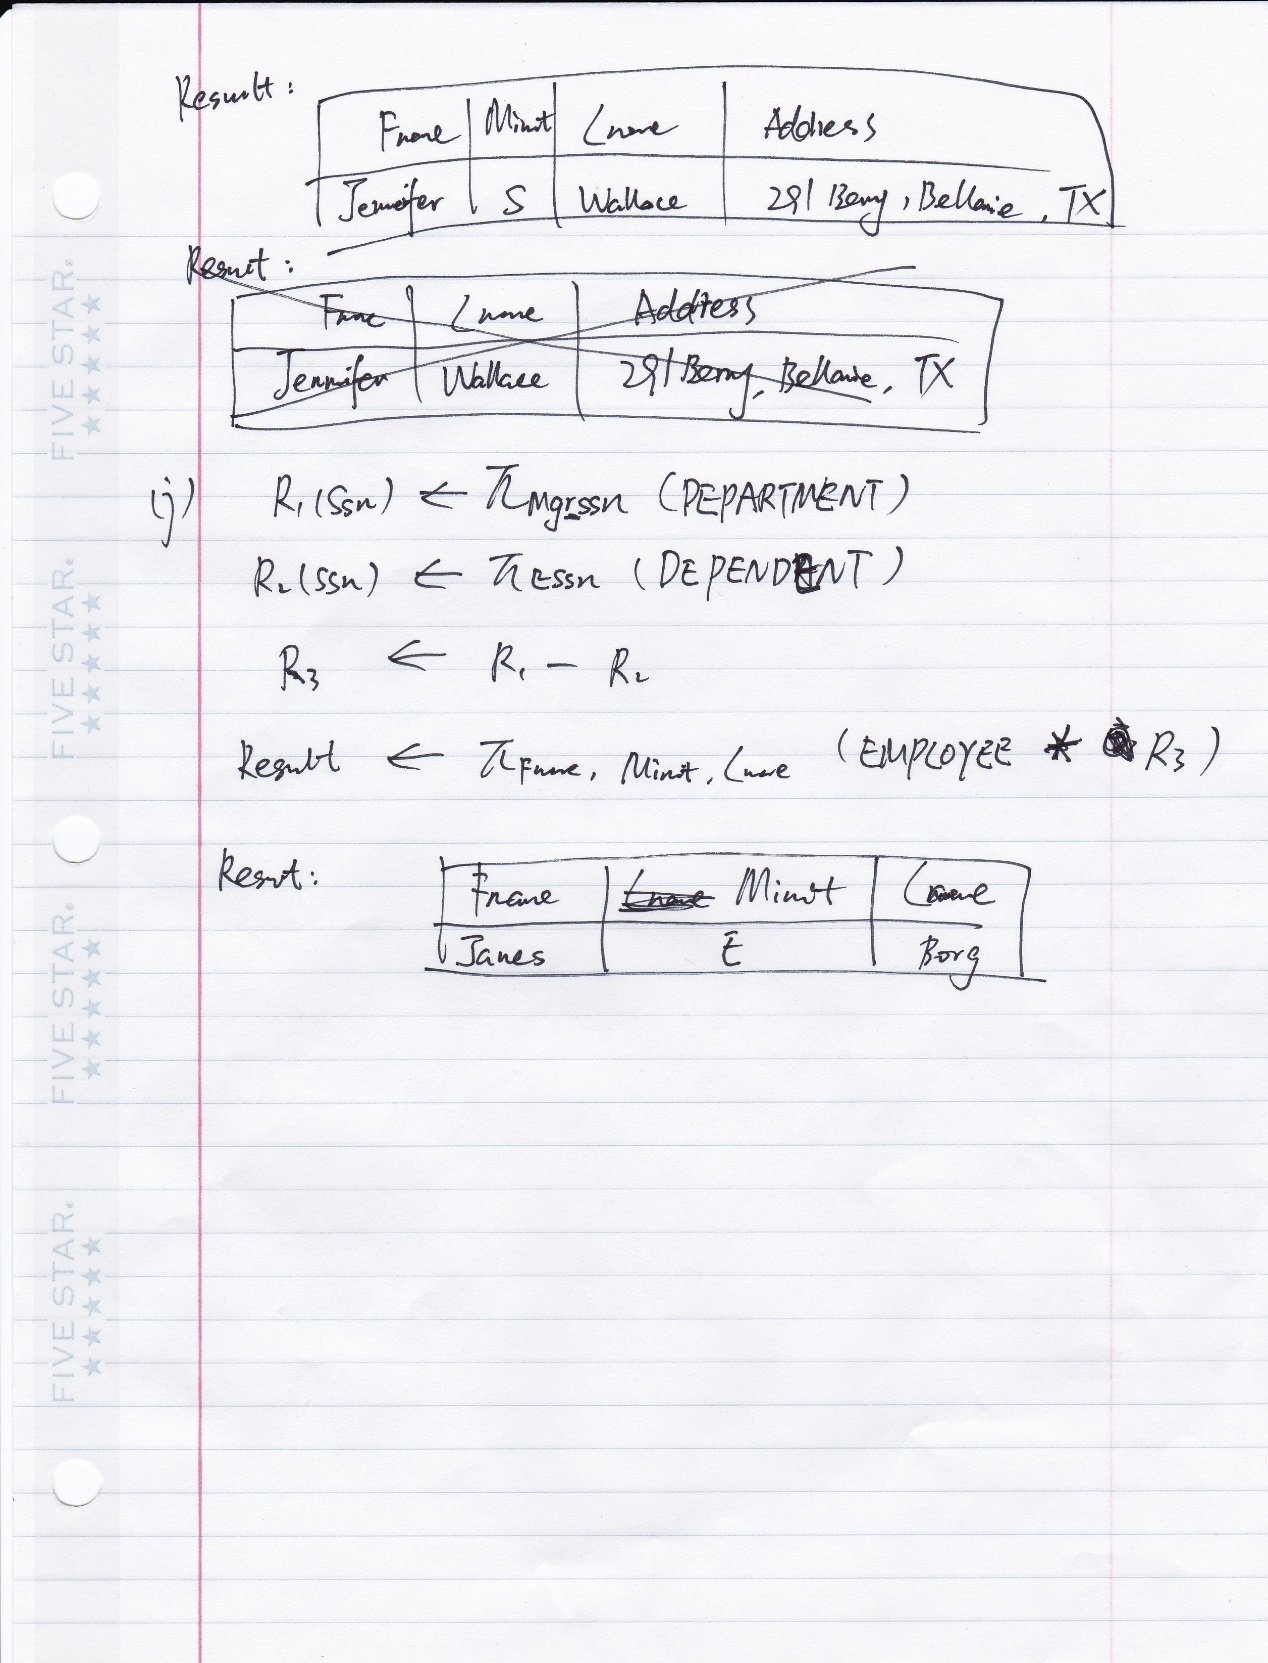 Result:
Fname | Minit | Lname | Address
Jennifer | S | Wallace | 291 Berry, Bellaire, TX
Result:
Fname | Lname | Address
Jennifer | Wallace | 291 Berry, Bellaire, TX
(j) R₁(Ssn) ← π Mgrssn (DEPARTMENT)
R₂(Ssn) ← π Essn (DEPENDENT)
R₃ ← R₁ − R₂
Result ← π Fname, Minit, Lname (EMPLOYEE * R₃)
Result:
Fname | Lname Minit | Lname
James | E | Borg
FIVE STAR.
FIVE STAR.
FIVE STAR.
FIVE STAR.